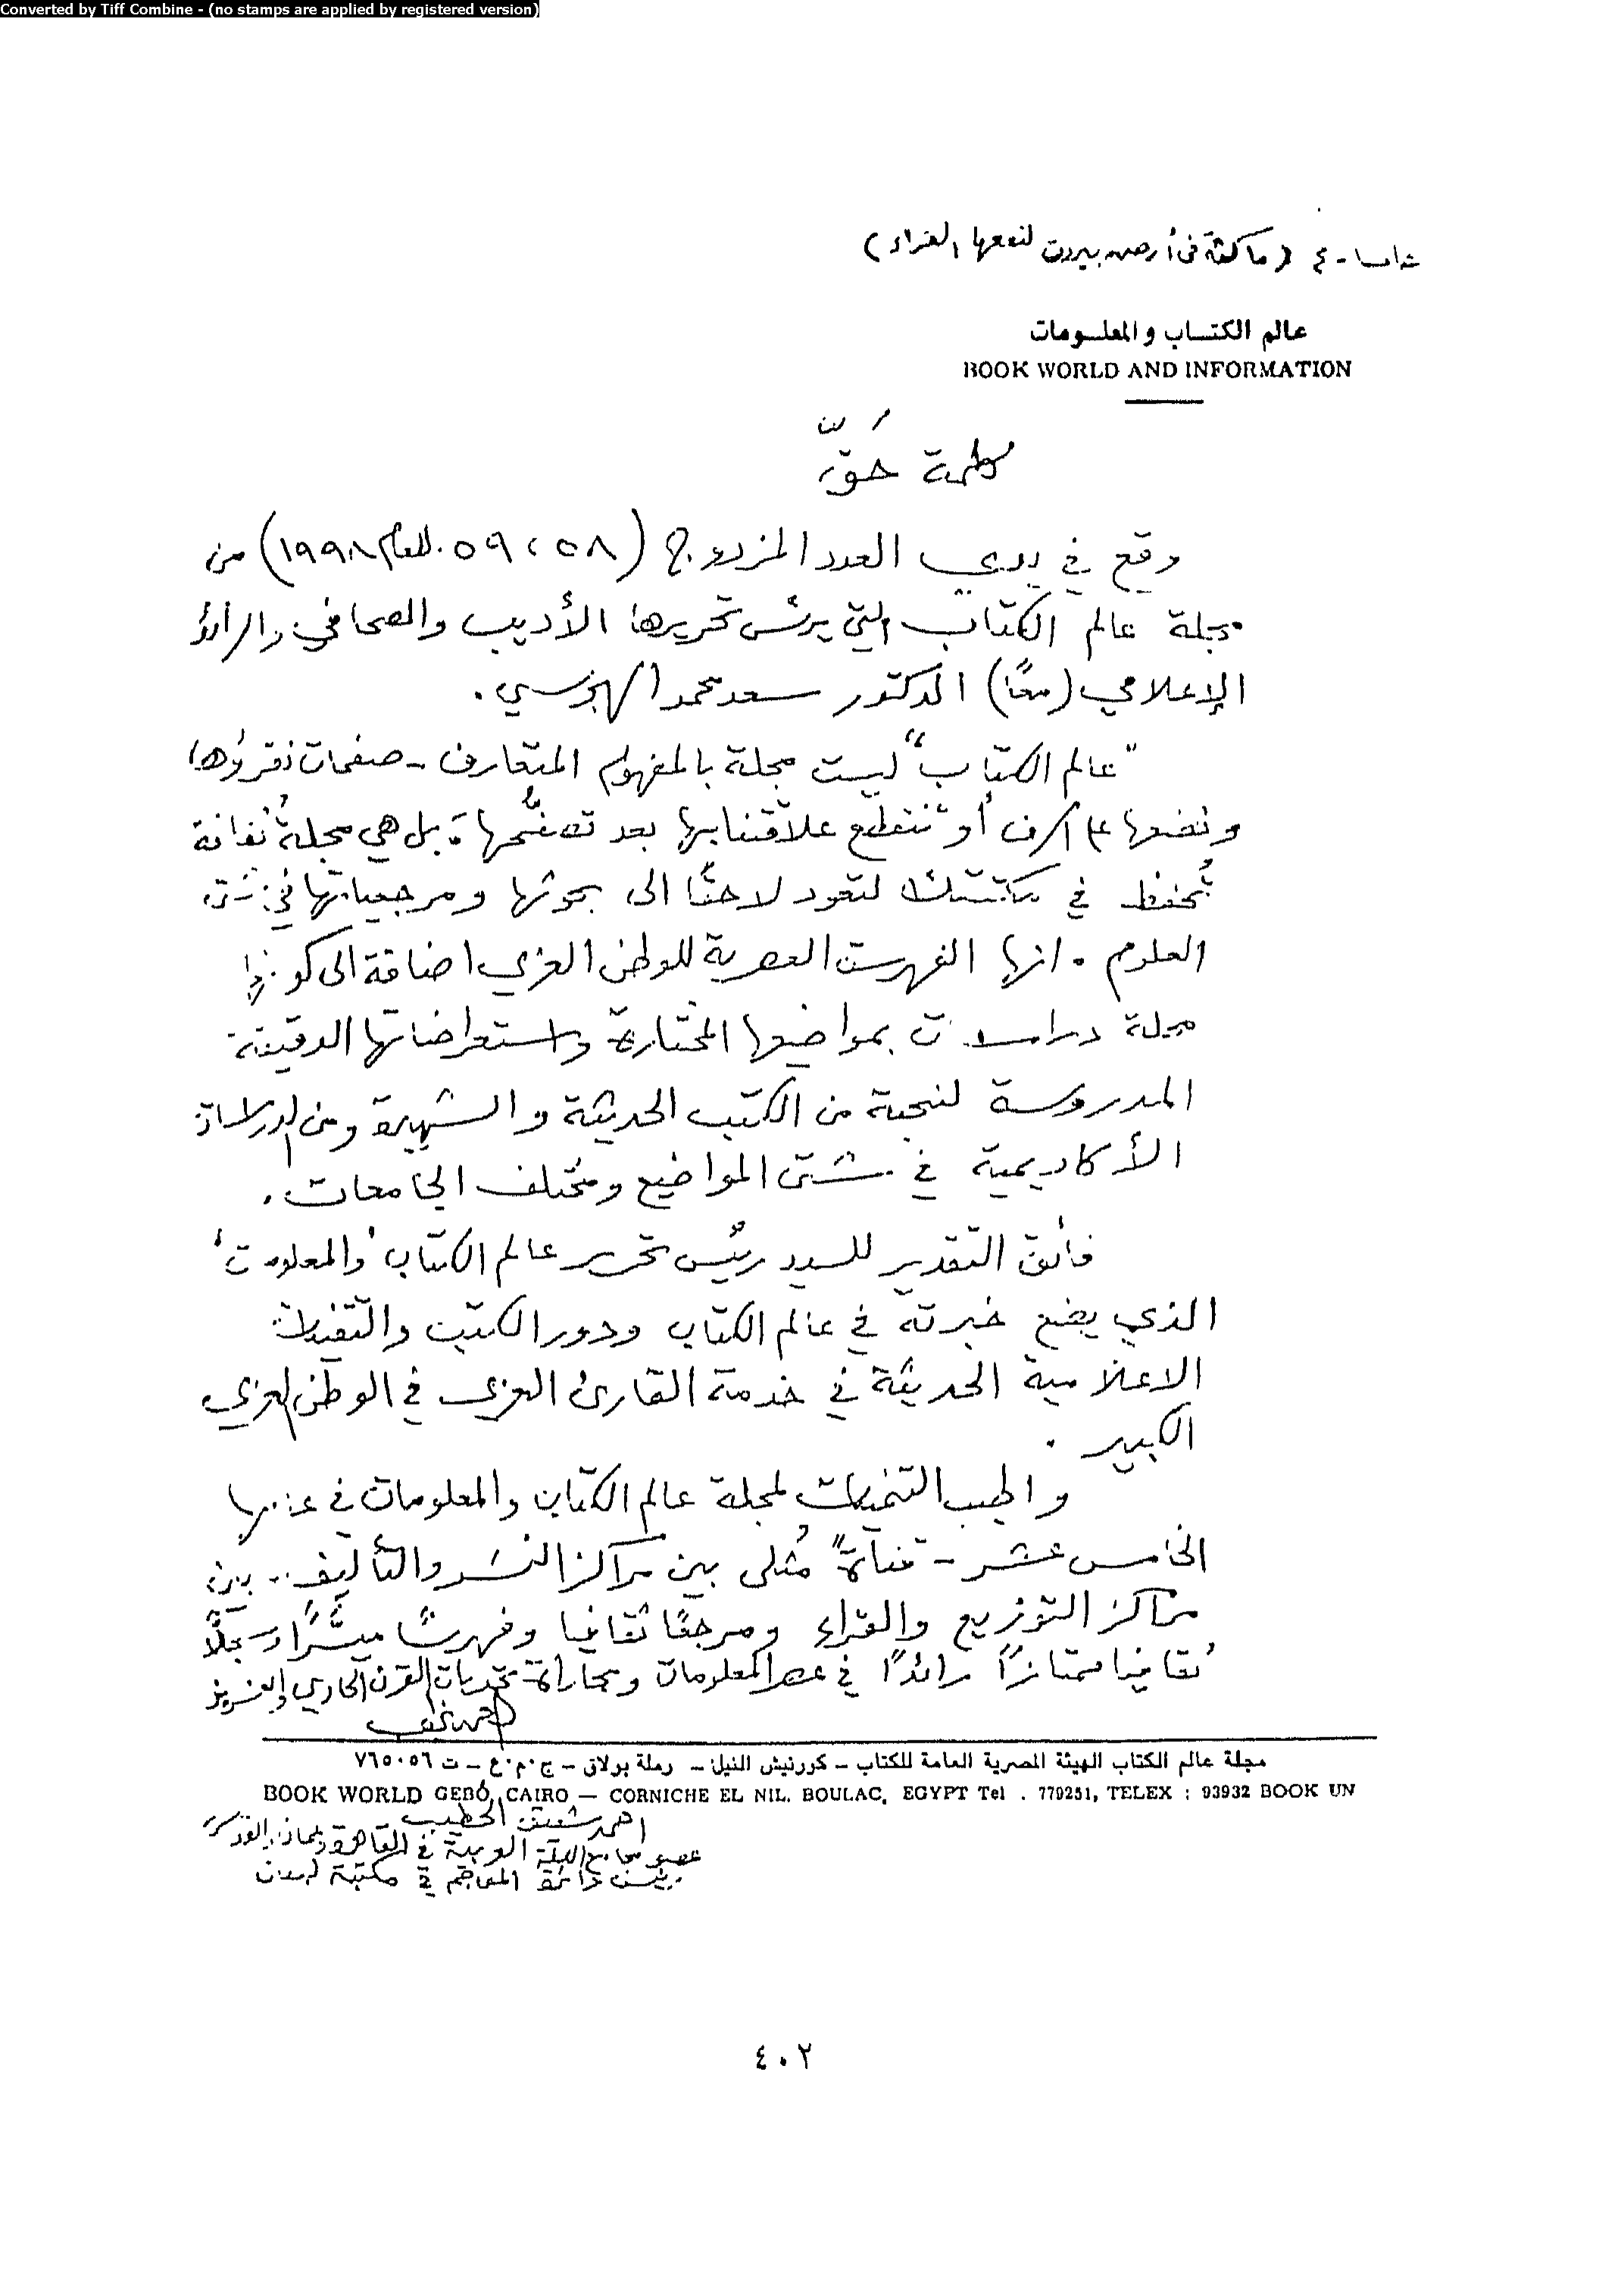 Converted by Tiff Combine - (no stamps are applied by registered version)
(ماكثة فى أرض بيروت لنفعها القراء)
عالم الكتـاب والمعلـومات
BOOK WORLD AND INFORMATION
كلمة حَقّ
وقع في يدي العدد المزدوج (٥٨، ٥٩ للعام ١٩٩٨) من
مجلة عالم الكتاب التي يرئس تحريرها الأديب والصحافي والرائد
الإعلامي (معًا) الدكتور سعد محمد الهجرسي.
"عالم الكتاب" ليست مجلة بالمفهوم المتعارف - صفحات نقرؤها
ونضعها على الرف أو تنقطع علاقتنا بها بعد تصفُّحها، بل هي مجلة ثقافة
تُحفظ في مكتبتك لتعود لاحقًا الى بحوثها ومرجعياتها في شتى
العلوم. انها الفهرست العصرية للوطن العربي اضافة الى كونها
مجلة دراسات بمواضيعها المختارة واستعراضاتها الدقيقة
المدروسة لنخبة من الكتب الحديثة والشهيرة ومن الدراسات
الأكاديمية في شتى المواضيع ومختلف الجامعات.
فائق التقدير للسيد رئيس تحرير عالم الكتاب 'والمعلومات'
الذي يضع خبرته في عالم الكتاب ودور الكتب والتقنيات
الاعلامية الحديثة في خدمة القارئ العربي في الوطن العربي
الكبير.
واطيب التمنيات لمجلة عالم الكتاب والمعلومات في عامها
الخامس عشر - قناةً مُثلى بين مراكز النشر والتأليف.. بين
مراكز التوزيع والقراء ومرجعًا ثقافيا وفهرسًا ميسَّرًا وسجلًّا
ثقافيا ممتازًا رائدًا في عصر المعلومات ومجاراة تحديات القرن الحادي والعشرين
مجلة عالم الكتاب الهيئة المصرية العامة للكتاب - كورنيش النيل - رملة بولاق - ج.م.ع - ت ٧٦٥٠٥٦
BOOK WORLD GEBO, CAIRO — CORNICHE EL NIL. BOULAC, EGYPT Tel . 779251, TELEX : 93932 BOOK UN
احمد شفيق الخطيب
عضو مجامع اللغة العربية في القاهرة وعمان والقدس
رئيس دائرة المعاجم في مكتبة لبنان
٤٠٢